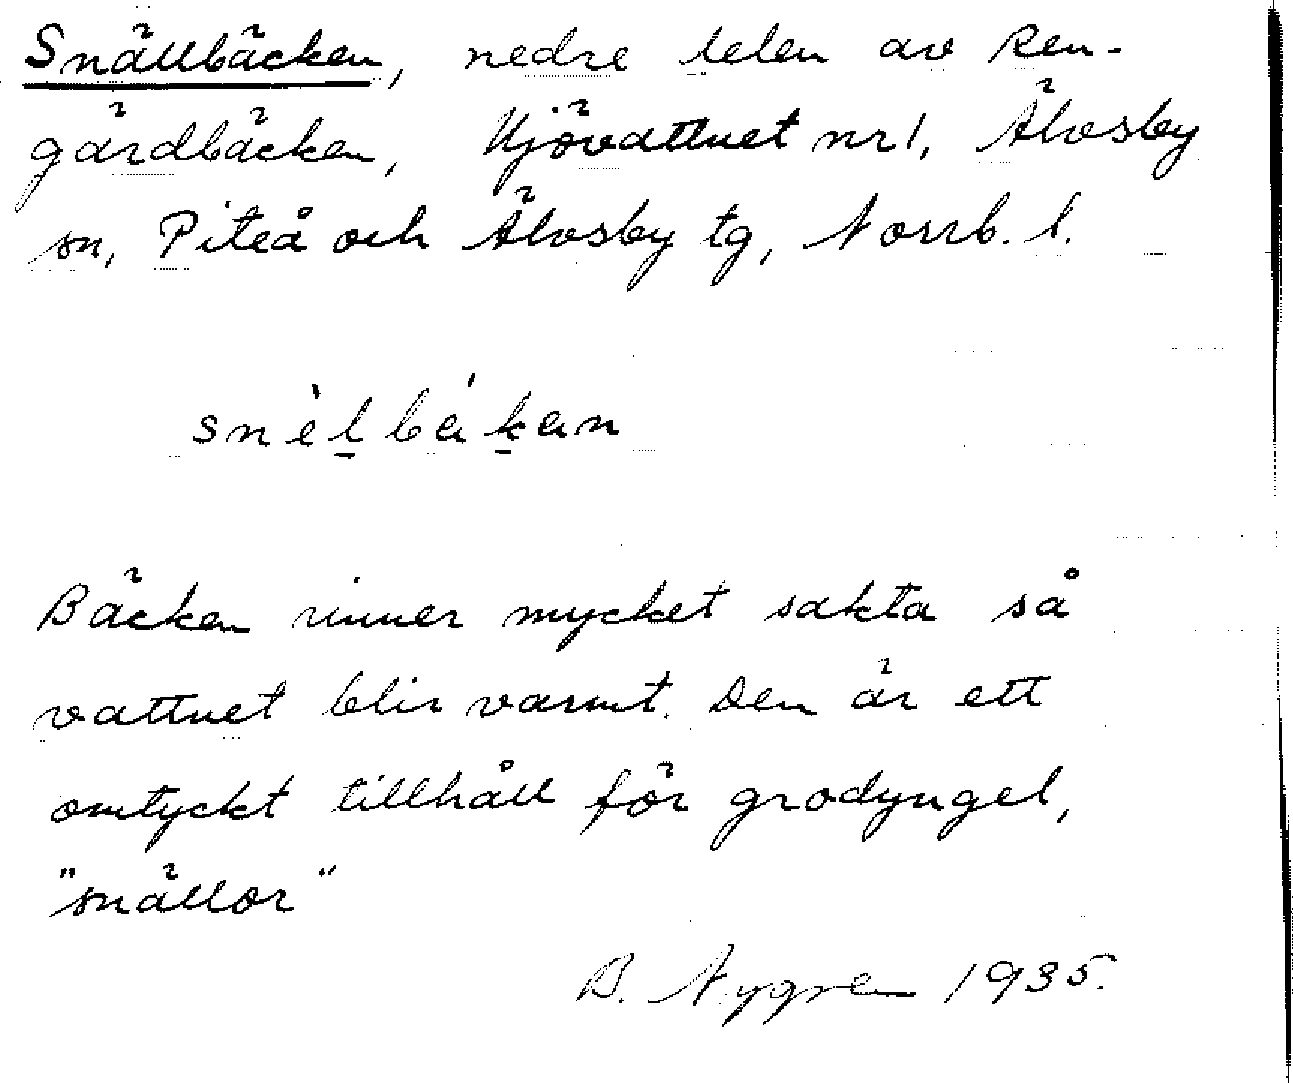 Snällbäcken, nedre delen av Ren-
gärdbäcken, Mjövattnet nr 1, Älvsby
sn, Piteå och Älvsby tg, Norrb. l.
Bäcken rinner mycket sakta så
vattnet blir varmt. Den är ett
omtyckt tillhåll för grodyngel,
"snällor"
B. Nygren 1935.